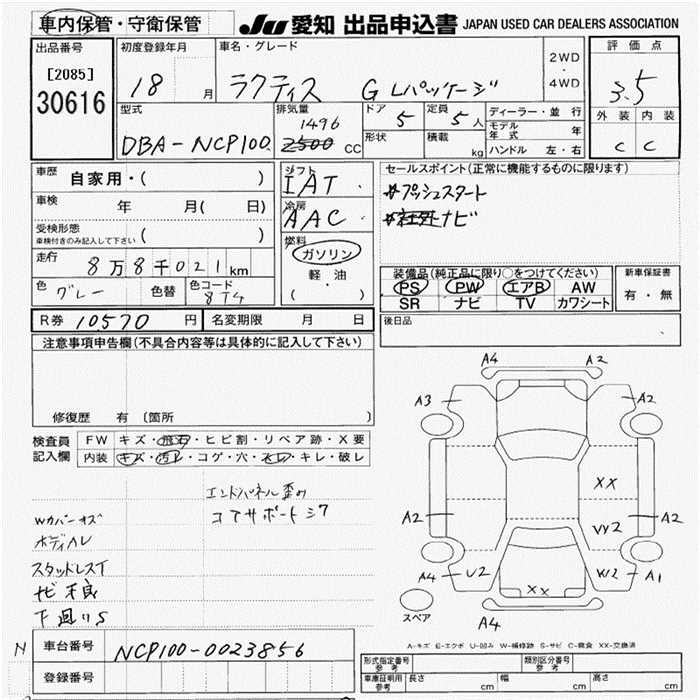 車内保管・守衛保管
JU 愛知 出品申込書 JAPAN USED CAR DEALERS ASSOCIATION
出品番号
[2085]
30616
初度登録年月
18 月
車名・グレード
ラクティス G Lパッケージ
2WD
・
4WD
評価点
3.5
型式
DBA-NCP100
排気量
1496
2500 CC
ドア
5
定員
5人
形状
積載 kg
ディーラー・並行
モデル年式 年
ハンドル 左・右
外装 内装
C C
車歴
自家用・( )
車検 年 月( 日)
受検形態
車検付きのみ記入して下さい ( )
走行
8万8千021km
色
グレー
色替
色コード
8T4
シフト
IAT
冷房
AAC
燃料
ガソリン
軽油
( ・ )
セールスポイント(正常に機能するものに限ります)
#プッシュスタート
#社外ナビ
装備品(純正品に限り○をつけてください)
PS PW エアB AW
SR ナビ TV カワシート
新車保証書
有・無
R券 10570 円
名変期限 月 日
後日品
注意事項申告欄(不具合内容等は具体的に記入して下さい)
修復歴 有 〔箇所 〕
検査員
記入欄
FW キズ・飛石・ヒビ割・リペア跡・X要
内装 キズ・汚レ・コゲ・穴・スレ・キレ・破レ
エンドパネル歪み
Wカバーキズ コアサポートシワ
ボディAレ
スタッドレスT
ナビ不良
下廻りS
A4 A2
A3 A2
XX
A2 A2
VY2
A4 U2 XX W2 A1
スペア
A4
A-キズ E-エクボ U-凹み W-補修跡 S-サビ C-腐食 XX-交換済
N 車台番号 NCP100-0023856
登録番号
形式指定番号
参考
類別区分番号
参考
車庫証明用
参考
長さ cm 幅 cm 高さ cm